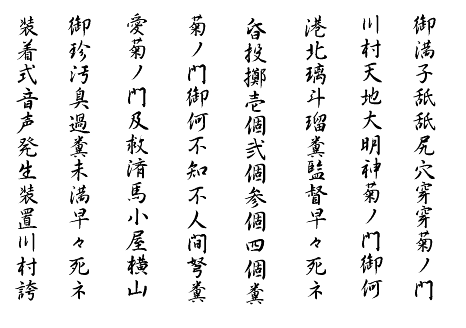 御満子舐舐尻穴穿穿菊ノ門
川村天地大明神菊ノ門御何
港北璃斗瑠糞監督早々死ネ
呑投擲壱個弐個参個四個糞
菊ノ門御何不知不人間弩糞
愛菊ノ門及救済馬小屋横山
御珍汚臭過糞未満早々死ネ
装着式音声発生装置川村誇